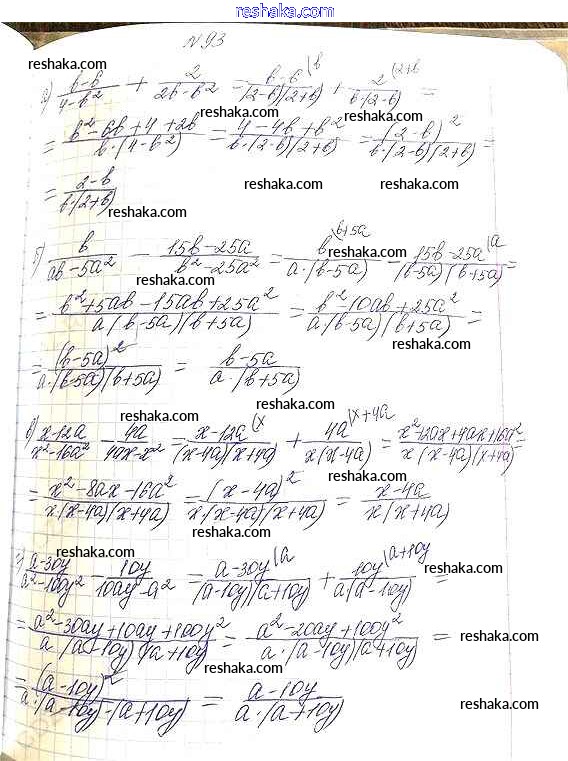 reshaka.com
№93
reshaka.com
а) (b-6)/(4-b²) + 2/(2b-b²) = (b-6)/((2-b)(2+b)) \b + 2/(b·(2-b)) \2+b =
reshaka.com
= (b²-6b+4+2b)/(b·(4-b²)) = (4-4b+b²)/(b·(2-b)(2+b)) = (2-b)²/(b·(2-b)(2+b)) =
reshaka.com reshaka.com
= (2-b)/(b·(2+b)) reshaka.com reshaka.com
reshaka.com
б) b/(ab-5a²) - (15b-25a)/(b²-25a²) = b/(a·(b-5a)) \b+5a - (15b-25a)/((b-5a)(b+5a)) \a =
reshaka.com reshaka.com
= (b²+5ab-15ab+25a²)/(a(b-5a)(b+5a)) = (b²-10ab+25a²)/(a(b-5a)(b+5a)) =
reshaka.com reshaka.com
= (b-5a)²/(a·(b-5a)(b+5a)) = (b-5a)/(a·(b+5a))
reshaka.com
в) (x-12a)/(x²-16a²) - 4a/(4ax-x²) = (x-12a)/((x-4a)(x+4a)) \x + 4a/(x(x-4a)) \x+4a = (x²-12ax+4ax+16a²)/(x(x-4a)(x+4a)) =
reshaka.com
= (x²-8ax-16a²)/(x(x-4a)(x+4a)) = (x-4a)²/(x(x-4a)(x+4a)) = (x-4a)/(x(x+4a))
reshaka.com
reshaka.com
г) (a-30y)/(a²-100y²) - 10y/(10ay-a²) = (a-30y)/((a-10y)(a+10y)) \a + 10y/(a(a-10y)) \a+10y =
reshaka.com reshaka.com
= (a²-30ay+10ay+100y²)/(a(a-10y)(a+10y)) = (a²-20ay+100y²)/(a·(a-10y)(a+10y)) =
reshaka.com
reshaka.com
= (a-10y)²/(a·(a-10y)·(a+10y)) = (a-10y)/(a·(a+10y))
reshaka.com reshaka.com
reshaka.com